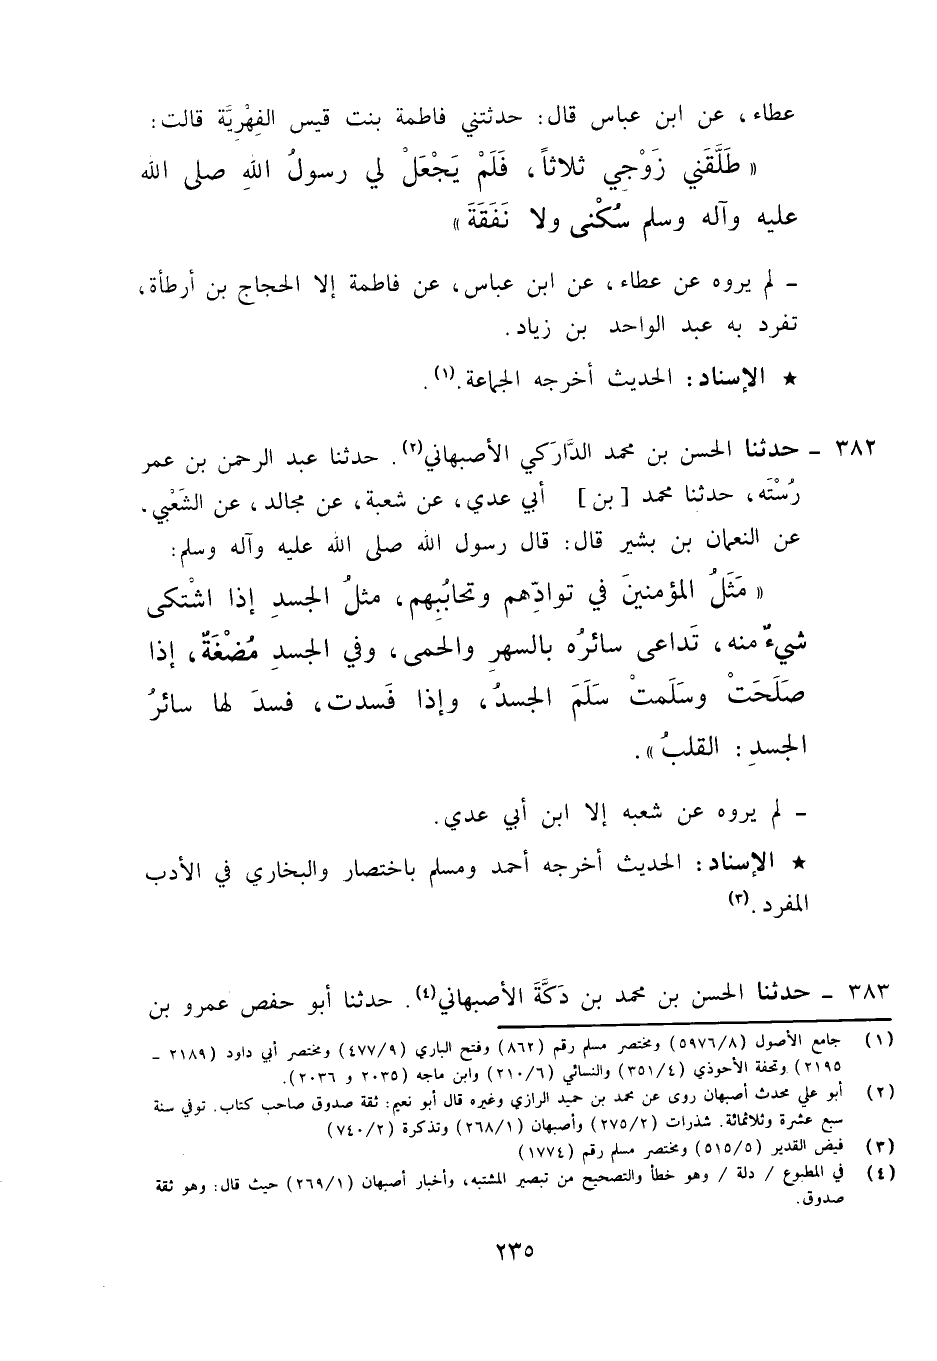 عطاء، عن ابن عباس قال: حدثتني فاطمة بنت قيس الفِهْريَّة قالت:
« طَلَّقَني زَوْجي ثلاثاً، فَلَمْ يَجْعَلْ لي رسولُ اللهِ صلى الله
عليه وآله وسلم سُكْنى ولا نَفَقَةَ »
- لم يروه عن عطاء، عن ابن عباس، عن فاطمة إلا الحجاج بن أرطأة،
تفرد به عبد الواحد بن زياد.
★ الإسناد: الحديث أخرجه الجماعة.(١).
٣٨٢ - حدثنا الحسن بن محمد الدَّارَكي الأصبهاني(٢). حدثنا عبد الرحمن بن عمر
رُسْتَه، حدثنا محمد [ بن ] أبي عدي، عن شعبة، عن مجالد، عن الشَعْبي.
عن النعمان بن بشير قال: قال رسول الله صلى الله عليه وآله وسلم:
« مَثَلُ المؤمنينَ في توادِّهم وتحابُبِهم، مثلُ الجسدِ إذا اشْتكى
شيءٌ منه، تَداعى سائرُه بالسهرِ والحمى، وفي الجسدِ مُضْغَةٌ، إذا
صَلَحَتْ وسَلَمتْ سَلَمَ الجسدُ، وإذا فَسدت، فسدَ لها سائرُ
الجسدِ: القلبُ ».
- لم يروه عن شعبه إلا ابن أبي عدي.
★ الإسناد: الحديث أخرجه أحمد ومسلم باختصار والبخاري في الأدب
المفرد.(٣)
٣٨٣ - حدثنا الحسن بن محمد بن دَكَّةَ الأصبهاني(٤). حدثنا أبو حفص عمرو بن
(١) جامع الأصول (٥٩٧٦/٨) ومختصر مسلم رقم (٨٦٢) وفتح الباري (٤٧٧/٩) ومختصر أبي داود (٢١٨٩ -
٢١٩٥) وتحفة الأحوذي (٣٥١/٤) والنسائي (٢١٠/٦) وابن ماجه (٢٠٣٥ و ٢٠٣٦).
(٢) أبو علي محدث أصبهان روى عن محمد بن حميد الرازي وغيره قال أبو نعيم: ثقة صدوق صاحب كتاب. توفي سنة
سبع عشرة وثلاثمائة. شذرات (٢٧٥/٢) وأصبهان (٢٦٨/١) وتذكرة (٧٤٠/٢)
(٣) فيض القدير (٥١٥/٥) ومختصر مسلم رقم (١٧٧٤)
(٤) في المطبوع / دلة / وهو خطأ والتصحيح من تبصير المشتبه، وأخبار أصبهان (٢٦٩/١) حيث قال: وهو ثقة
صدوق.
٢٣٥